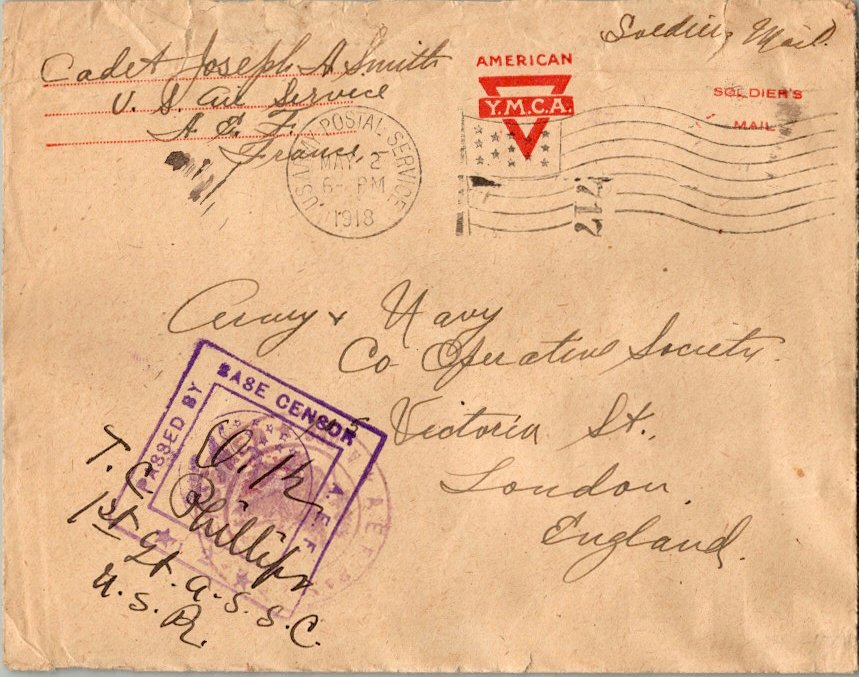 Soldiers Mail.
Cadet Joseph A Smith
U. S. Air Service
A. E. F.
France
AMERICAN
Y.M.C.A.
SOLDIER'S
MAIL
U.S. ARMY POSTAL SERVICE
MAY 2
6- PM
1918
717
Army & Navy
Co Operative Society
Victoria St.,
London
England.
PASSED BY
BASE CENSOR
A.E.F.
Phillips
1st Lt. A.S.S.C.
U.S.R.